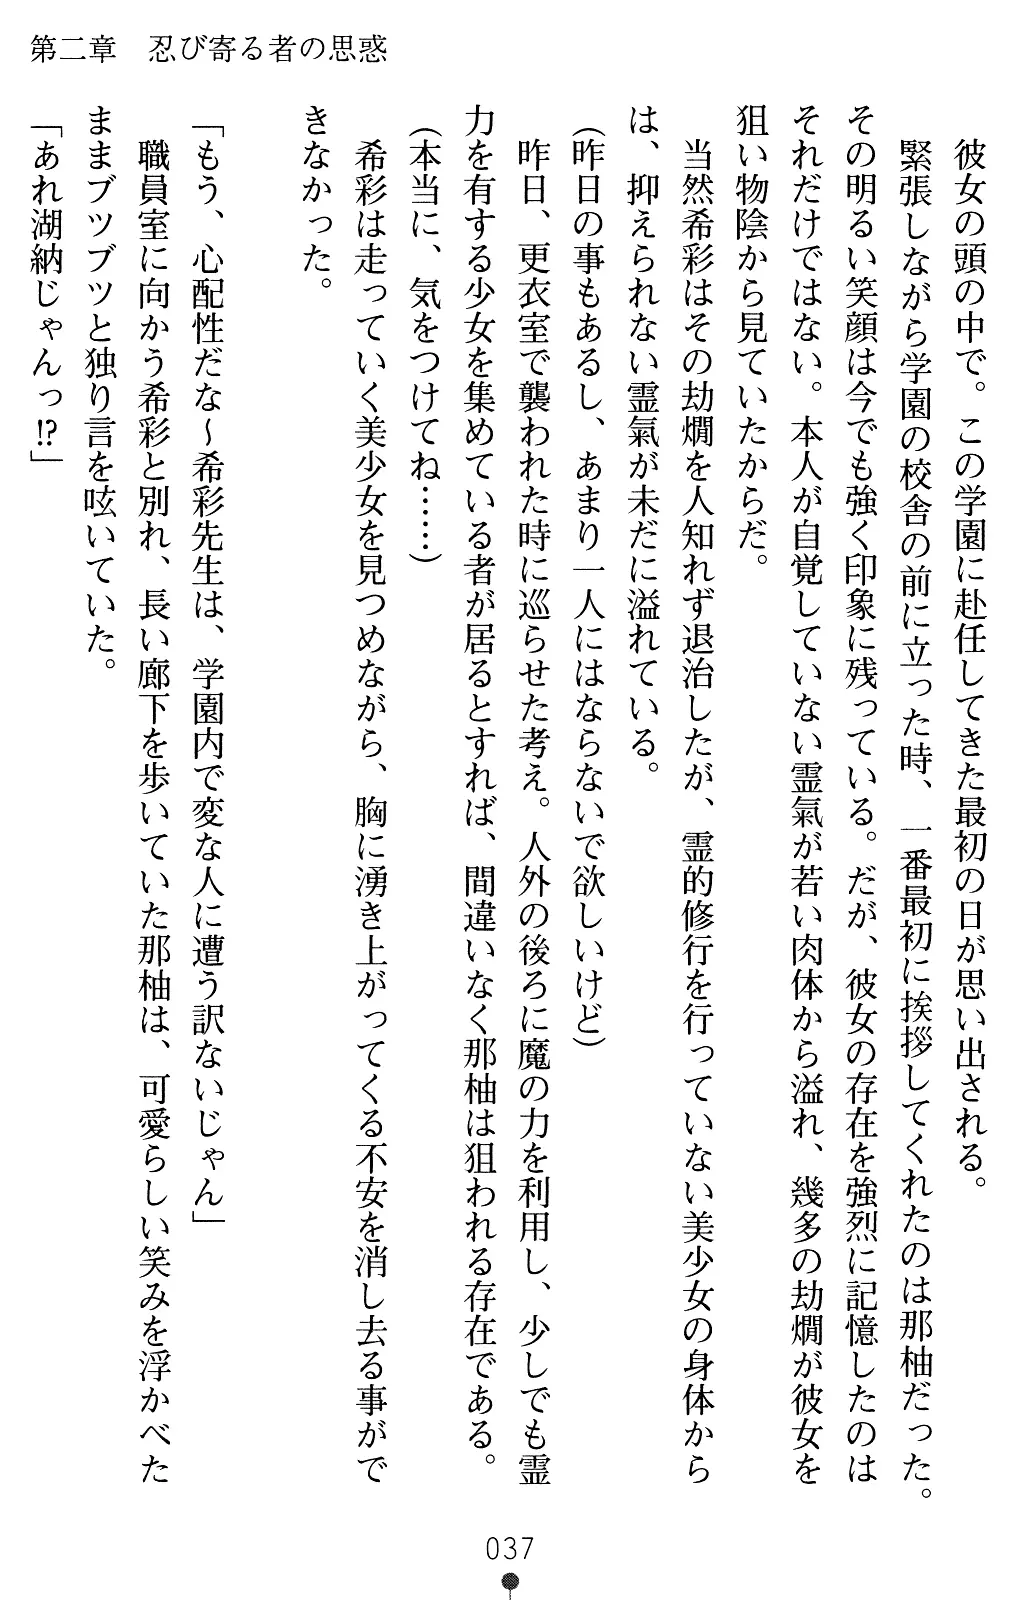 第二章　忍び寄る者の思惑
　彼女の頭の中で。この学園に赴任してきた最初の日が思い出される。
　緊張しながら学園の校舎の前に立った時、一番最初に挨拶してくれたのは那柚だった。
その明るい笑顔は今でも強く印象に残っている。だが、彼女の存在を強烈に記憶したのは
それだけではない。本人が自覚していない霊氣が若い肉体から溢れ、幾多の劫燗が彼女を
狙い物陰から見ていたからだ。
　当然希彩はその劫燗を人知れず退治したが、霊的修行を行っていない美少女の身体から
は、抑えられない霊氣が未だに溢れている。
（昨日の事もあるし、あまり一人にはならないで欲しいけど）
　昨日、更衣室で襲われた時に巡らせた考え。人外の後ろに魔の力を利用し、少しでも霊
力を有する少女を集めている者が居るとすれば、間違いなく那柚は狙われる存在である。
（本当に、気をつけてね……）
　希彩は走っていく美少女を見つめながら、胸に湧き上がってくる不安を消し去る事がで
きなかった。
「もう、心配性だな～希彩先生は、学園内で変な人に遭う訳ないじゃん」
　職員室に向かう希彩と別れ、長い廊下を歩いていた那柚は、可愛らしい笑みを浮かべた
ままブツブツと独り言を呟いていた。
「あれ湖納じゃんっ!?」
037